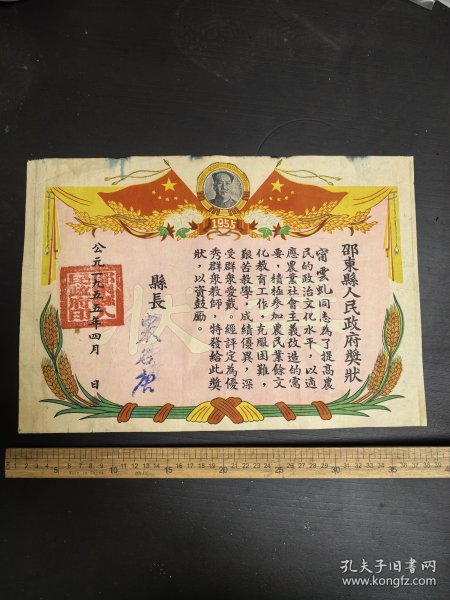 1955
邵東縣人民政府獎狀
甯雲凱同志為了提高農
民的政治文化水平，以適
應農業社會主義改造的需
要，積極参加農民業餘文
化教育工作，克服困难，
艱苦教學，成績優異，深
受群衆愛戴。經評定為優
秀群衆教師，特發給此獎
狀，以資鼓勵。
縣長
公元一九五五年四月 日
孔夫子旧书网
www.kongfz.com